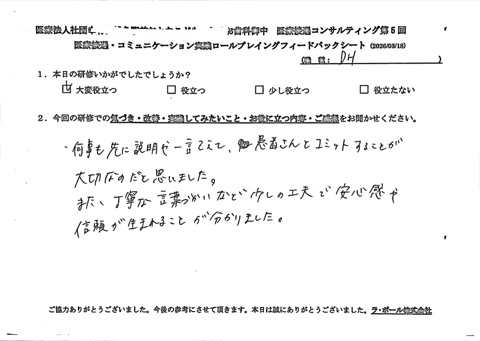 医療法人社団 お歯科御中 医療接遇コンサルティング第5回
医療接遇・コミュニケーション実践ロールプレイングフィードバックシート (2026/03/18)
(職種: DH )
1．本日の研修いかがでしたでしょうか？
☑ 大変役立つ □ 役立つ □ 少し役立つ □ 役立たない
2．今回の研修での気づき・改善・実践してみたいこと・お役に立つ内容・ご感想をお聞かせください。
・何事も先に説明や一言そえて、患者さんとコミットすることが
大切なのだと思いました。
また、丁寧な言葉づかいなど少しの工夫で安心感や
信頼が生まれることが分かりました。
ご協力ありがとうございました。今後の参考にさせて頂きます。本日は誠にありがとうございました。ラ・ポール株式会社